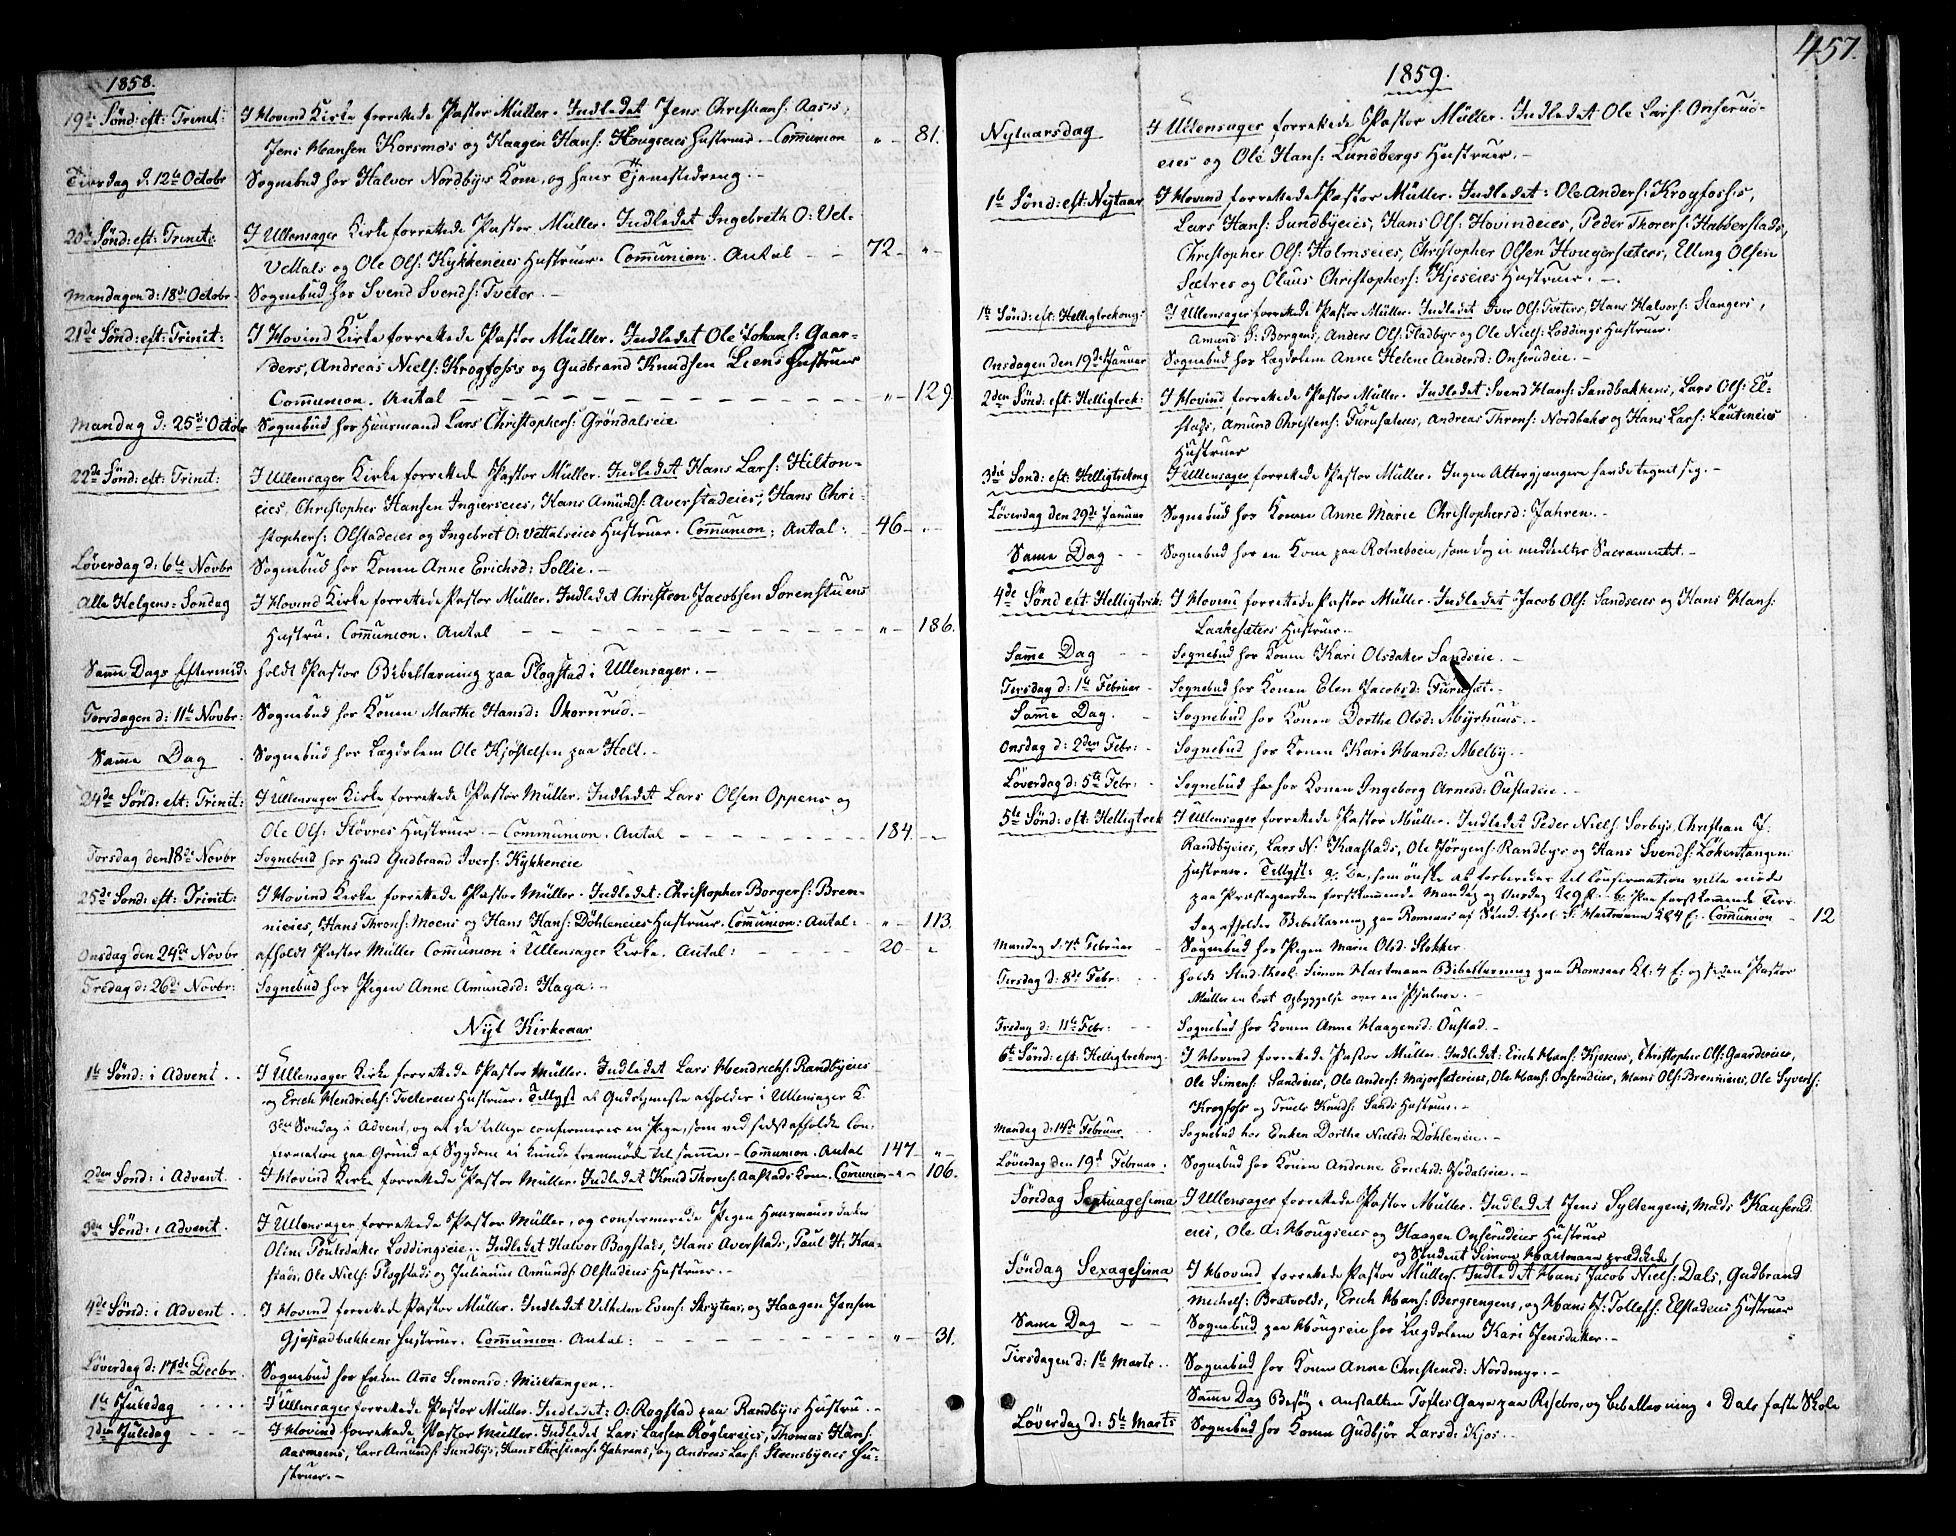 1858.
19de Sønd: eft: Trinit: I Hovind Kirke forrettede Pastor Müller. Indledet Jens Christians: Aasis,
Jens Hansen Korsmoes og Haagen Hans: Hougseies Hustruer. Communion " - 81.
Tirsdag d: 12te Octobr Sognebud hos Halvor Nordbyes Kone, og hans Tjenestedreng.-
20de Sønd: eft: Trinit: I Ullensager Kirke forrettede Pastor Müller. Indledet Ingebreth O: Vet-
Vettals og Ole Ols: Kykkeneies Hustruer. Communion. Antal - - 72 - "
Mandagen d: 18de Octobr Sognebud hos Svend Svends: Tveter.-
21de Sønd: eft: Trinit: I Hovind Kirke forrettede Pastor Müller. Indledet Ole Johans: Gaar-
ders, Andreas Niels: Krogfoss og Gudbrand Knudsen Liens Hustruer
Communion. Antal - - - " - 129.
Mandag d: 25de Octobr Sognebud hos Huusmand Lars Christophers: Gröndalseie
22de Sønd: eft: Trinit: I Ullensager Kirke forrettede Pastor Müller. Indledet Hans Lars: Hilton-
eies, Christopher Hansen Ingierseies, Hans Amunds: Averstadeies, Hans Chri-
stophers: Olstadeies og Ingebret O: Vettalseies Hustruer. Communion; Antal: - 46 - "
Løverdag d: 6te Novbr Sognebud hos Konen Anne Erichsd: Sollie.-
Alle Helgens-Søndag I Hovind Kirke forrettede Pastor Müller. Indledet Christen Jacobsen Sorenstuens
Hustru. Communion. Antal - - - " - 186.
Samme Dags Eftermid: holdt Pastor Bibellæsning paa Flogstad i Ullensager.-
Torsdagen d: 11te Novbr: Sognebud hos Konen Marthe Hansd: Skornrud.-
Samme Dag Sognebud hos Lægdslem Ole Kjøstelsen paa Holt.-
24de Sønd: eft: Trinit: I Ullensager Kirke forrettede Pastor Müller. Indledet Lars Olsen Oppens og
Ole Ols: Støvres Hustruer.- Communion. Antal - - - 184 - -
Torsdag den 18de Novbr Sognebud hos Hmd Gudbrand Ivers: Kykkeneie
25de Sønd: eft: Trinit: I Hovind Kirke forrettede Pastor Müller. Indledet: Christopher Borgers: Bren-
nieies, Hans Throns: Moens og Hans Hans: Döhleneies Hustruer. Communion: Antal: - " - 113.
Onsdag den 24de Novbr afholdt Pastor Müller Communion i Ullensager Kirke. Antal: - - 20 - "
Fredag d: 26de Novbr: Sognebud hos Pigen Anne Amundsd: Haga.-
Nyt Kirkeaar
1ste Sønd: i Advent I Ullensager Kirke forrettede Pastor Müller. Indledet Lars Hendrichs: Randbyeies
og Erich Hendrichs: Tvetereies Hustruer. Tillyst at Gudstjeneste afholdes i Ullensager K.
3die Søndag i Advent, og at da tillige confirmeres en Pige, som ved sidst afholdte Con-
firmation paa Grund af Sygdom ei kunde fremmøde til samme.- Communion. Antal 147 - "
2den Sønd: i Advent. I Hovind Kirke forrettede Pastor Müller. Indledet Knud Thores: Aastads Kone. Communion - " - 106.
3die Sønd: i Advent. I Ullensager forrettede Pastor Müller, og confirmerede Pigen Huusmandsdatter
Oline Poulsdatter Loddingseie. Indledet Halvor Bogstads, Hans Averstads, Paul H: Kaa-
stads, Ole Niels: Flogstads og Julianus Amunds: Olstadeies Hustruer.-
4de Sønd: i Advent I Hovind forrettede Pastor Müller. Indledet Vilhelm Evens: Skrytens, og Haagen Jensen
Gjestadbakkens Hustruer. Communion. Antal: - - " - 31.
Løverdag d: 17de Decbr. Sognebud hos Enken Anne Simonsd: Mieltangen.-
1ste Juledag .... I Ullensager forrettede Pastor Müller. Indledet: O: Rogstad paa Randbyes Hustru.-
2den Juledag - - - I Hovind forrettede Pastor Müller. Indledet Lars Larsen Röglereies, Thomas Hans:
Aasmoens, Lars Amunds: Sundbys, Hans Christians: Jahrens, og Andreas Lars: Steensbyeies Hu-
struer.-
457.
1859.
Nytaarsdag I Ullensager forrettede Pastor Müller. Indledet Ole Lars: Onserud-
eies og Ole Hans: Lundbergs Hustruer.-
1ste Sønd: eft: Nytaar I Hovind forrettede Pastor Müller. Indledet: Ole Anders: Krogfoss's,
Lars Hans: Sundbyeies, Hans Ols: Hovindeies, Peder Thorers: Habberstads,
Christopher Ols: Holmseies, Christopher Olsen Hougersæters, Elling Olsen
Sætres og Claus Christophers: Kjoseies Hustruer.-
1ste Sønd: eft: Helligtrekong: I Ullensager forrettede Pastor Müller. Indledet Iver Ols: Tveters, Hans Halvors: Slangers,
Amund S: Borgens, Anders Ols: Fladbys og Ole Niels: Loddings Hustruer.
Onsdagen den 19de Januar Sognebud hos Lægdslem Anne Helene Andersd: Onserudeie.-
2den Sønd: eft: Helligtrek: I Hovind forrettede Pastor Müller. Indledet Svend Hans: Sandbakkens, Lars Ols: El-
stads, Amund Christens: Furusæteies, Andreas Throns: Nordbaks og Hans Lars: Lauteneies
Hustruer
3die Sønd: eft: Helligtrekong I Ullensager forrettede Pastor Müller. Ingen Altergjængere havde tegnet sig.-
Løverdag den 29de Januar Sognebud hos Konen Anne Marie Christophersd: Jahren.-
Samme Dag - - Sognebud hos en Kone paa Rotneboeie, som dog ei meddeeltes Sacramentet.-
4de Sønd eft: Helligtrek: I Hovind forrettede Pastor Müller. Indledet Jacob Ols: Sandseies og Hans Hans:
Laakesæters Hustruer.-
Samme Dag - - Sognebud hos Konen Kari Olsdatter Sandseie.-
Tirsdag d: 1ste Februar - Sognebud hos Konen Elen Jacobsd: Furuset.-
Samme Dag. - Sognebud hos Konen Dorthe Olsd: Myrhuus.-
Onsdag d: 2den Febr: - Sognebud hos Konen Kari Hansd: Melby.-
Løverdag d: 5te Febr: - Sognebud hos Konen Ingeborg Arnesd: Oustadeie.-
5te Sønd: eft: Helligtrek I Ullensager forrettede Pastor Müller. Indledet Peder Niels: Sorbys, Christian J:
Randbyeies, Lars N: Kaastads, Ole Jörgens: Randbys og Hans Svends: Løkentangen
Hustruer. Tillyst: a/. De, som önske at forberedes til Confirmation ville møde
paa Præstegaarden førstkommende Mandag og Onsdag Kl 9 F.- b/. Paa førstkommende Tirs-
dag afholdes Bibellæsning paa Romsaas af Stud. theol S. Hartmann Kl 4 E:- Communion - 12
Mandag d: 7de Februar - Sognebud hos Pigen Marie Olsd: Stokker
Tirsdag d: 8de Febr: - holdt Stud. theol: Simon Hartmann Bibellæsning paa Romsaas Kl: 4 E: og siden Pastor
Müller en kort Opbyggelse over en Psalme.-
Fredag d: 11te Febr: - Sognebud hos Konen Anna Haagensd: Oustad.-
6te Sønd: eft: Helligtrekong. I Hovind forrettede Pastor Müller. Indledet: Erich Hans: Kjoseies, Christopher Ols: Gaardereies,
Ole Simens: Sandeies, Ole Anders: Majorsætereies, Ole Hans: Onserudeies, Hans Ols: Brennieies, Ole Syvers:
Krogfoss og Truels Knuds: Sands Hustruer.-
Mandag d: 14de Februar. Sognebud hos Enken Dorthe Nielsd: Döhleneie.-
Løverdag den 19de Februar. Sognebud hos Konen Andrine Erichsd: Jödalseie.-
Söndag Septuagesima I Ullensager forrettede Pastor Müller. Indledet Jens Syltengens, Mads Kauserud
eies, Ole A: Hougseies og Haagen Onserudeies Hustruer
og Student Simon Hartmann prædikede/
Söndag Sexagesima I Hovind forrettede Pastor Müller/. Indledet Hans Jacob Niels: Dals, Gudbrand
Michels: Bratvolds, Erich Hans: Bergsengens, og Hans J: Tollefs: Elstadeies Hustruer
Samme Dag - - Sognebud paa Hougseie hos Lægdslem Kari Jensdatter.-
Tirsdagen d: 1ste Marts.. Sognebud hos Konen Anne Christensd: Nordmyr.-
Samme Dag Besøg i Anstalten Toftes Gave paa Risebro, og Bibellæsning i Dals faste Skole
Løverdag d: 5te Marts Sognebud hos Konen Gudbjör Larsd: Kjos.-